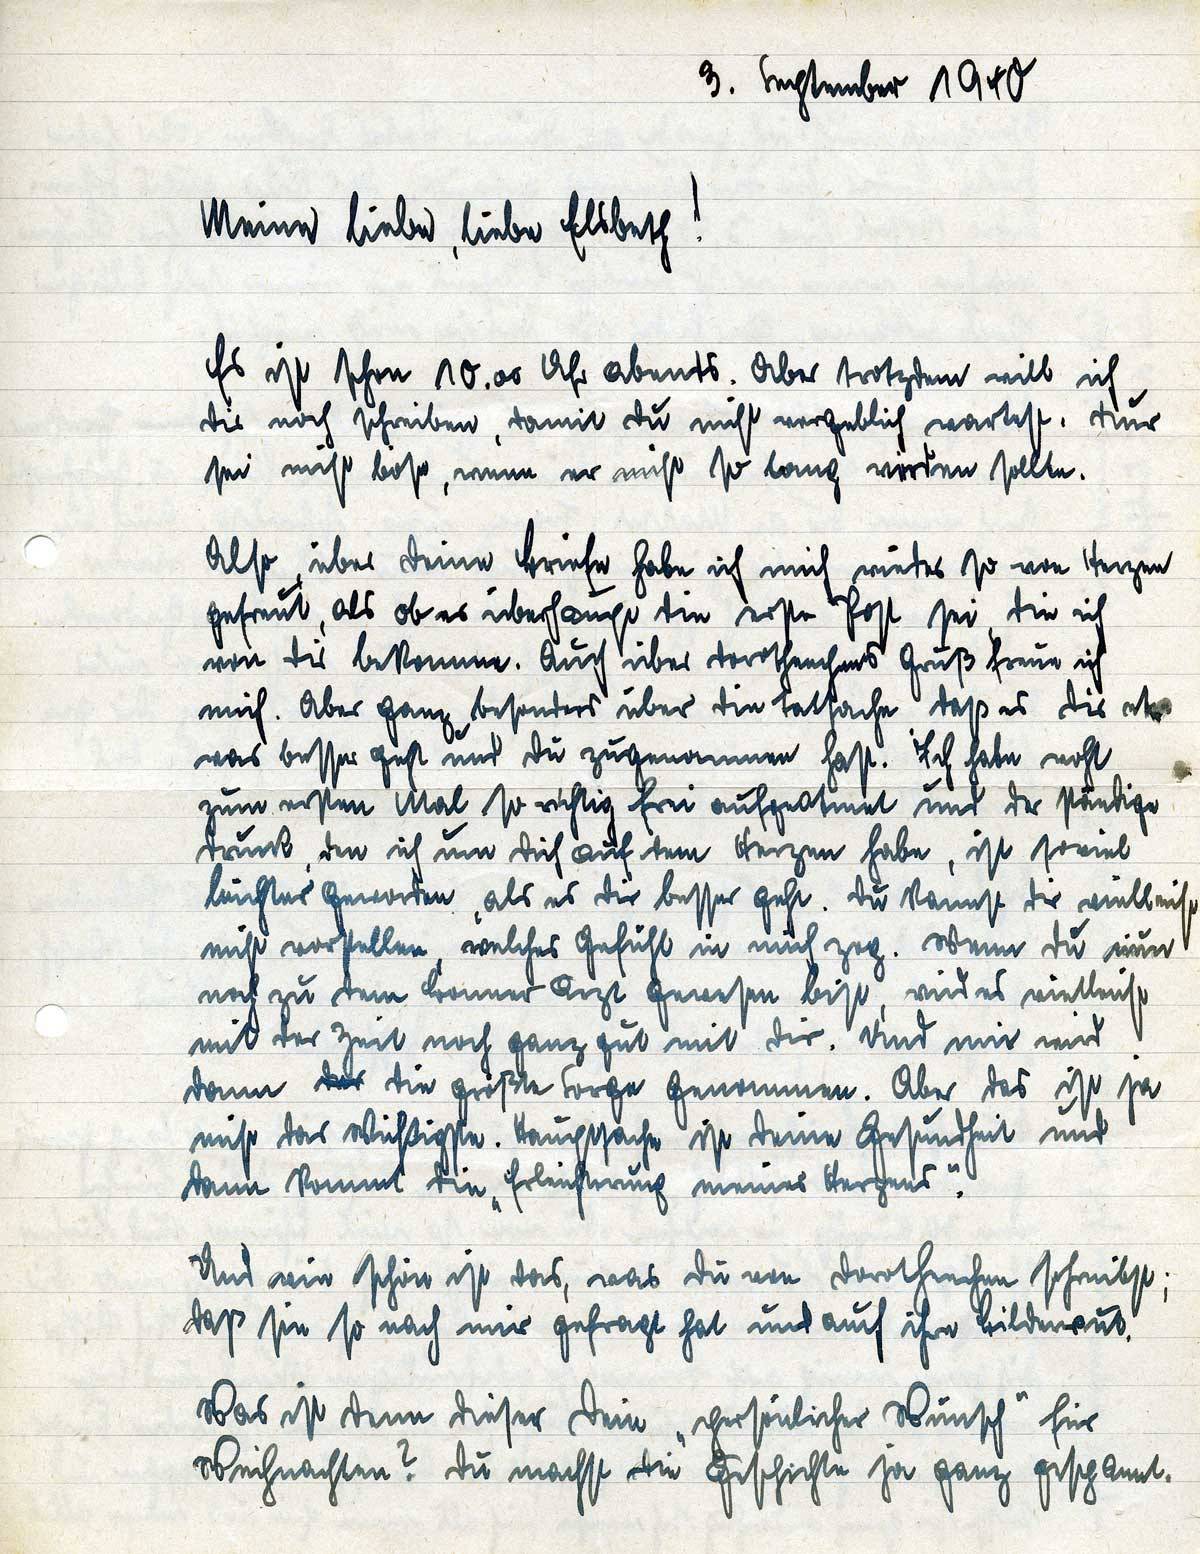 3. September 1940
Meine liebe, liebe Elsbeth!
Es ist schon 10.00 Uhr abends. Aber trotzdem will ich
dir noch schreiben, damit du nicht vergeblich wartest. Nur
sei nicht böse, wenn er nicht so lang werden sollte.
Also, über deine Briefe habe ich mich wieder so von Herzen
gefreut, als ob es überhaupt die erste Post sei, die ich
von dir bekomme. Auch über Dorotheechens Gruß freue ich
mich. Aber ganz besonders über die Tatsache, daß es dir et-
was besser geht und du zugenommen hast. Ich habe wohl
zum ersten Mal so richtig frei aufgeatmet und der ständige
Druck, den ich um dich auf dem Herzen habe, ist soviel
leichter geworden, als es dir besser geht. Du kannst dir vielleicht
nicht vorstellen, welches Gefühl in mich zog. Wenn du nun
noch zu dem Bonner Arzt gewesen bist, wird es vielleicht
mit der Zeit noch ganz gut mit dir. Und mir wird
dann die größte Sorge genommen. Aber das ist ja
nicht das Wichtigste. Hauptsache ist deine Gesundheit und
dann kommt die „Erleichterung meines Herzens".
Und wie schön ist das, was du von Dorotheechen schreibst;
daß sie so nach mir gefragt hat und auch ihre Bilderwut.
Was ist denn dieser dein „persönlicher Wunsch" für
Weihnachten? Du machst die Geschichte ja ganz gespannt.